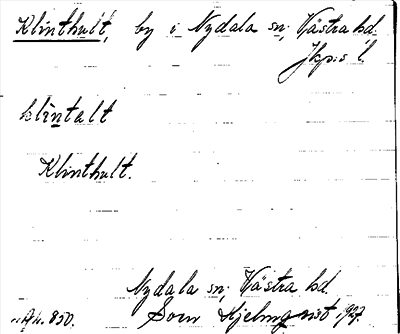 Klinthult, by i Nydala sn, Västra hd.
Jkp:s l.
klintalt
Klinthult.
Nydala sn, Västra hd.
Ah. 850. Sven Kjelmqvist 1927.